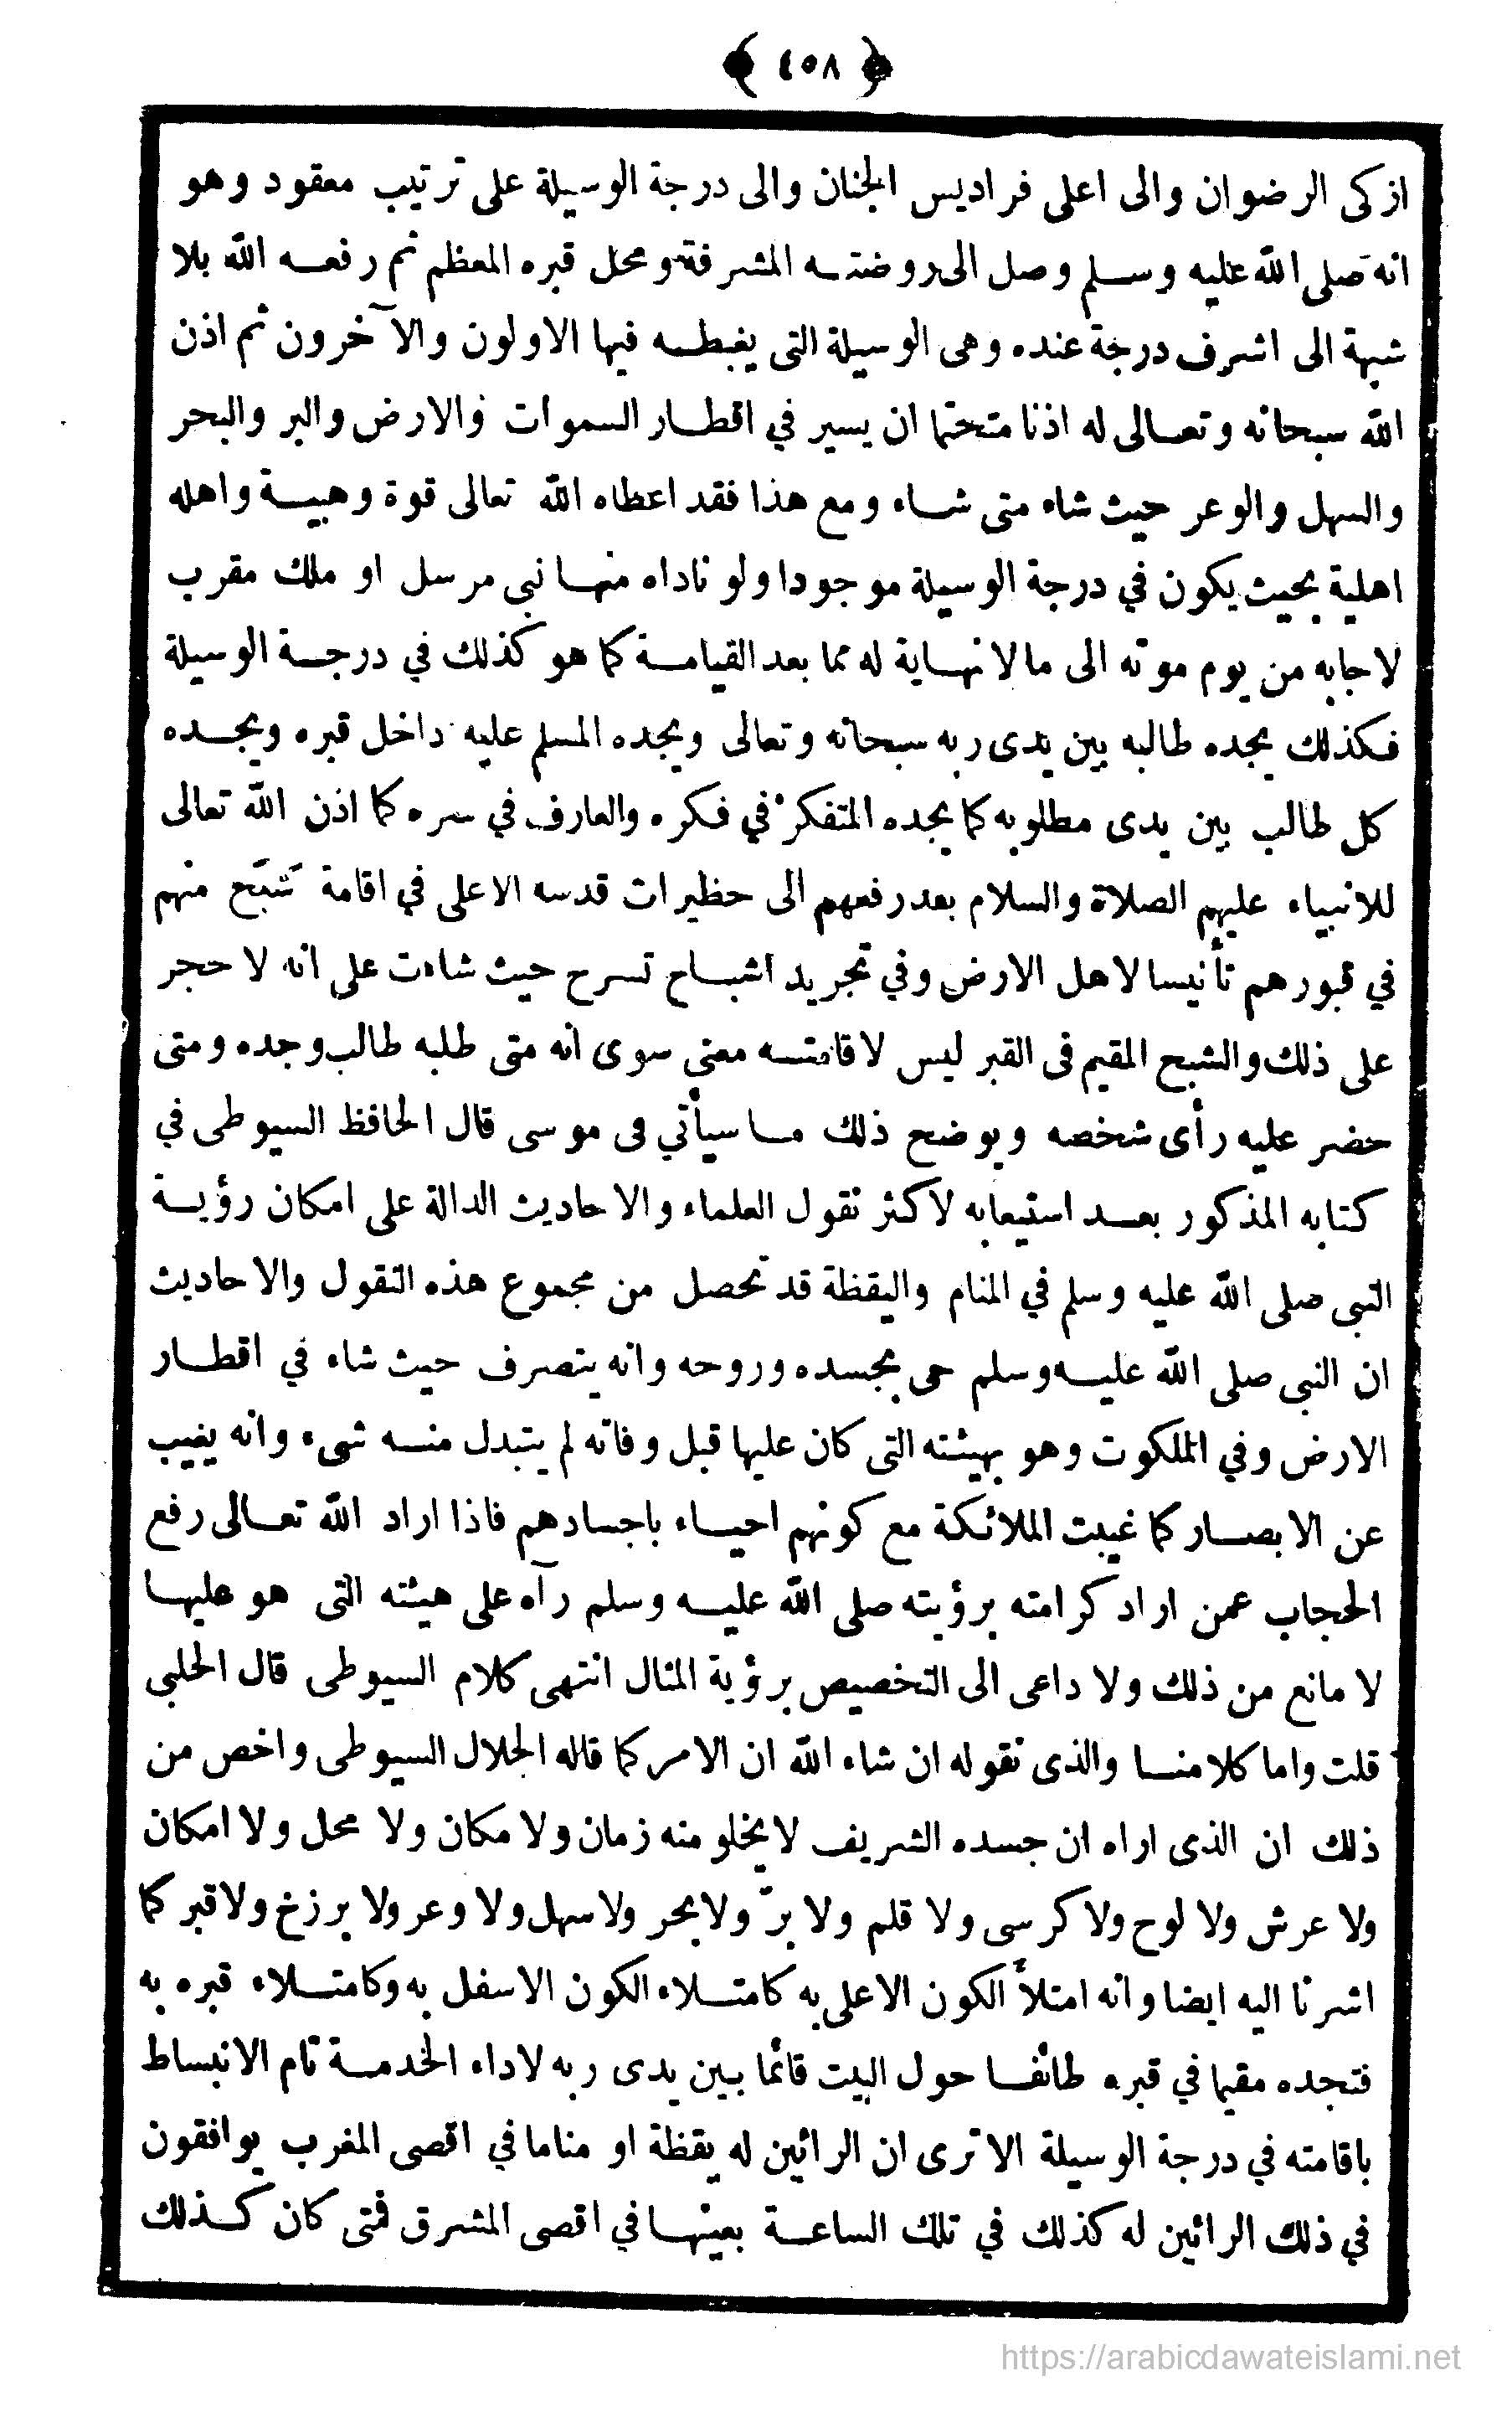 ﴿ ٤٥٨ ﴾
ازكى الرضوان والى اعلى فراديس الجنان والى درجة الوسيلة على ترتيب معقود وهو
انه صلى الله عليه وسلم وصل الى روضته المشرفة ومحل قبره المعظم ثم رفعه الله بلا
شبهة الى اشرف درجة عنده وهى الوسيلة التى يغبطه فيها الاولون والآخرون ثم اذن
الله سبحانه وتعالى له اذنا متحتما ان يسير في اقطار السموات والارض والبر والبحر
والسهل والوعر حيث شاء متى شاء ومع هذا فقد اعطاه الله تعالى قوة وهيبة واهله
اهلية بحيث يكون في درجة الوسيلة موجودا ولو ناداه منها نبى مرسل او ملك مقرب
لاجابه من يوم موته الى مالا نهاية له مما بعد القيامة كما هو كذلك في درجة الوسيلة
فكذلك يجده طالبه بين يدى ربه سبحانه وتعالى ويجده المسلم عليه داخل قبره ويجده
كل طالب بين يدى مطلوبه كما يجده المتفكر في فكره والعارف في سره كما اذن الله تعالى
للانبياء عليهم الصلاة والسلام بعد رفعهم الى حظيرات قدسه الاعلى في اقامة شَبَح منهم
في قبورهم تأنيسا لاهل الارض وفي تجريد اشباح تسرح حيث شاءت على انه لا حجر
على ذلك والشبح المقيم فى القبر ليس لاقامته معنى سوى انه متى طلبه طالب وجده ومتى
حضر عليه رأى شخصه ويوضح ذلك ما سيأتي فى موسى قال الحافظ السيوطى في
كتابه المذكور بعد استيعابه لاكثر نقول العلماء والاحاديث الدالة على امكان رؤية
النبى صلى الله عليه وسلم في المنام واليقظة قد تحصل من مجموع هذه النقول والاحاديث
ان النبى صلى الله عليه وسلم حى بجسده وروحه وانه يتصرف حيث شاء في اقطار
الارض وفي الملكوت وهو بهيئته التى كان عليها قبل وفاته لم يتبدل منه شىء وانه يغيب
عن الابصار كما غيبت الملائكة مع كونهم احياء باجسادهم فاذا اراد الله تعالى رفع
الحجاب عمن اراد كرامته برؤيته صلى الله عليه وسلم رآه على هيئته التى هو عليها
لا مانع من ذلك ولا داعى الى التخصيص برؤية المثال انتهى كلام السيوطى قال الحلبي
قلت واما كلامنا والذى نقوله ان شاء الله ان الامر كما قاله الجلال السيوطى واخص من
ذلك ان الذى اراه ان جسده الشريف لا يخلو منه زمان ولا مكان ولا محل ولا امكان
ولا عرش ولا لوح ولا كرسى ولا قلم ولا برّ ولا بحر ولا سهل ولا وعر ولا برزخ ولا قبر كما
اشرنا اليه ايضا وانه امتلأ الكون الاعلى به كامتلاء الكون الاسفل به وكامتلاء قبره به
فتجده مقيما في قبره طائفا حول البيت قائما بين يدى ربه لاداء الخدمة تام الانبساط
باقامته في درجة الوسيلة الا ترى ان الرائين له يقظة او مناما في اقصى المغرب يوافقون
في ذلك الرائين له كذلك في تلك الساعة بعينها في اقصى المشرق فمتى كان كذلك
https://arabicdawateislami.net